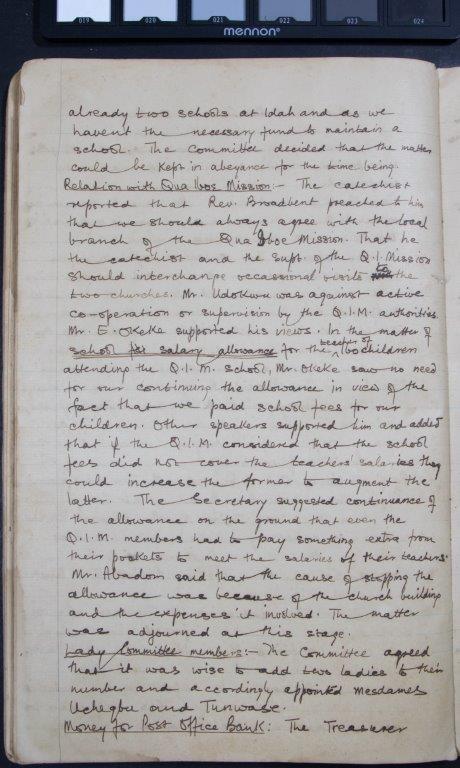 019 020 021 022 023 024
mennon
already two schools at Idah and as we
havent the necessary fund to maintain a
school. The Committee decided that the matter
could be kept in abeyance for the time being.
Relation with Qua Iboe Mission:- The catechist
reported that Rev. Broadbent preached to him
that we should always agree with the local
branch of the Qua Iboe Mission. That he
the catechist and the supt. of the Q.I. Mission
should interchange occassional visits to the
two churches. Mr. Udokwu was against active
co-operation or supervision by the Q.I.M. authorities.
Mr. E. Okeke supported his views. In the matter of
school salary allowance for the teacher of Ibo children
attending the Q.I.M. school, Mr. Okeke saw no need
for our continuing the allowance in view of the
fact that we paid school fees for our
children. Other speakers supported him and added
that if the Q.I.M. considered that the school
fees did not cover the teachers' salaries they
could increase the former to augment the
latter. The Secretary suggested continuance of
the allowance on the ground that even the
Q.I.M. members had to pay something extra from
their pockets to meet the salaries of their teachers.
Mr. Abadom said that the cause of stopping the
allowance was because of the church building
and the expenses it involved. The matter
was adjourned at this stage.
Lady Committee members:- The Committee agreed
that it was wise to add two ladies to their
number and accordingly appointed Mesdames
Uchegbu and Tunwase.
Money for Post Office Bank: The Treasurer